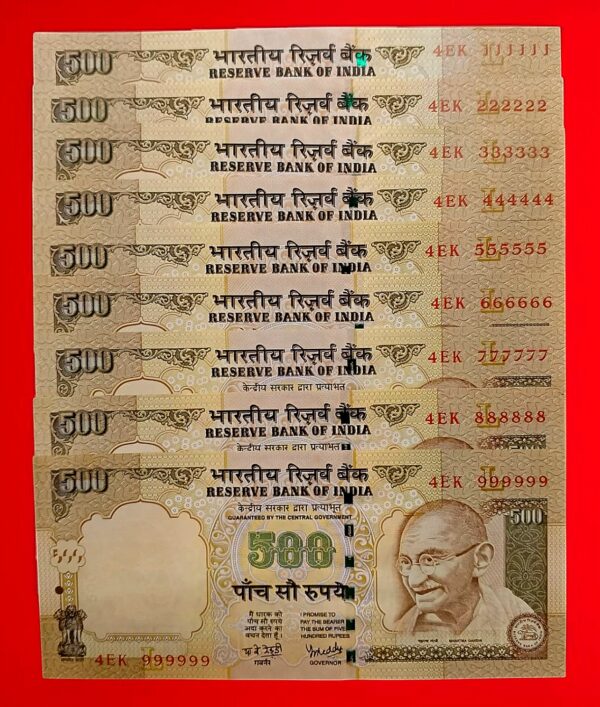 500 भारतीय रिज़र्व बैंक 4EK 111111
RESERVE BANK OF INDIA L
500 भारतीय रिज़र्व बैंक 4EK 222222
RESERVE BANK OF INDIA L
500 भारतीय रिज़र्व बैंक 4EK 333333
RESERVE BANK OF INDIA L
500 भारतीय रिज़र्व बैंक 4EK 444444
RESERVE BANK OF INDIA L
500 भारतीय रिज़र्व बैंक 4EK 555555
RESERVE BANK OF INDIA L
500 भारतीय रिज़र्व बैंक 4EK 666666
RESERVE BANK OF INDIA L
500 भारतीय रिज़र्व बैंक 4EK 777777
RESERVE BANK OF INDIA L
केन्द्रीय सरकार द्वारा प्रत्याभूत
500 भारतीय रिज़र्व बैंक 4EK 888888
RESERVE BANK OF INDIA L
केन्द्रीय सरकार द्वारा प्रत्याभूत
500 भारतीय रिज़र्व बैंक 4EK 999999
RESERVE BANK OF INDIA L
केन्द्रीय सरकार द्वारा प्रत्याभूत
GUARANTEED BY THE CENTRAL GOVERNMENT
500 500
पाँच सौ रुपये
मैं धारक को I PROMISE TO
पाँच सौ रुपये PAY THE BEARER
अदा करने का THE SUM OF FIVE
वचन देता हूँ। HUNDRED RUPEES
महात्मा गांधी MAHATMA GANDHI
4EK 999999
गवर्नर GOVERNOR